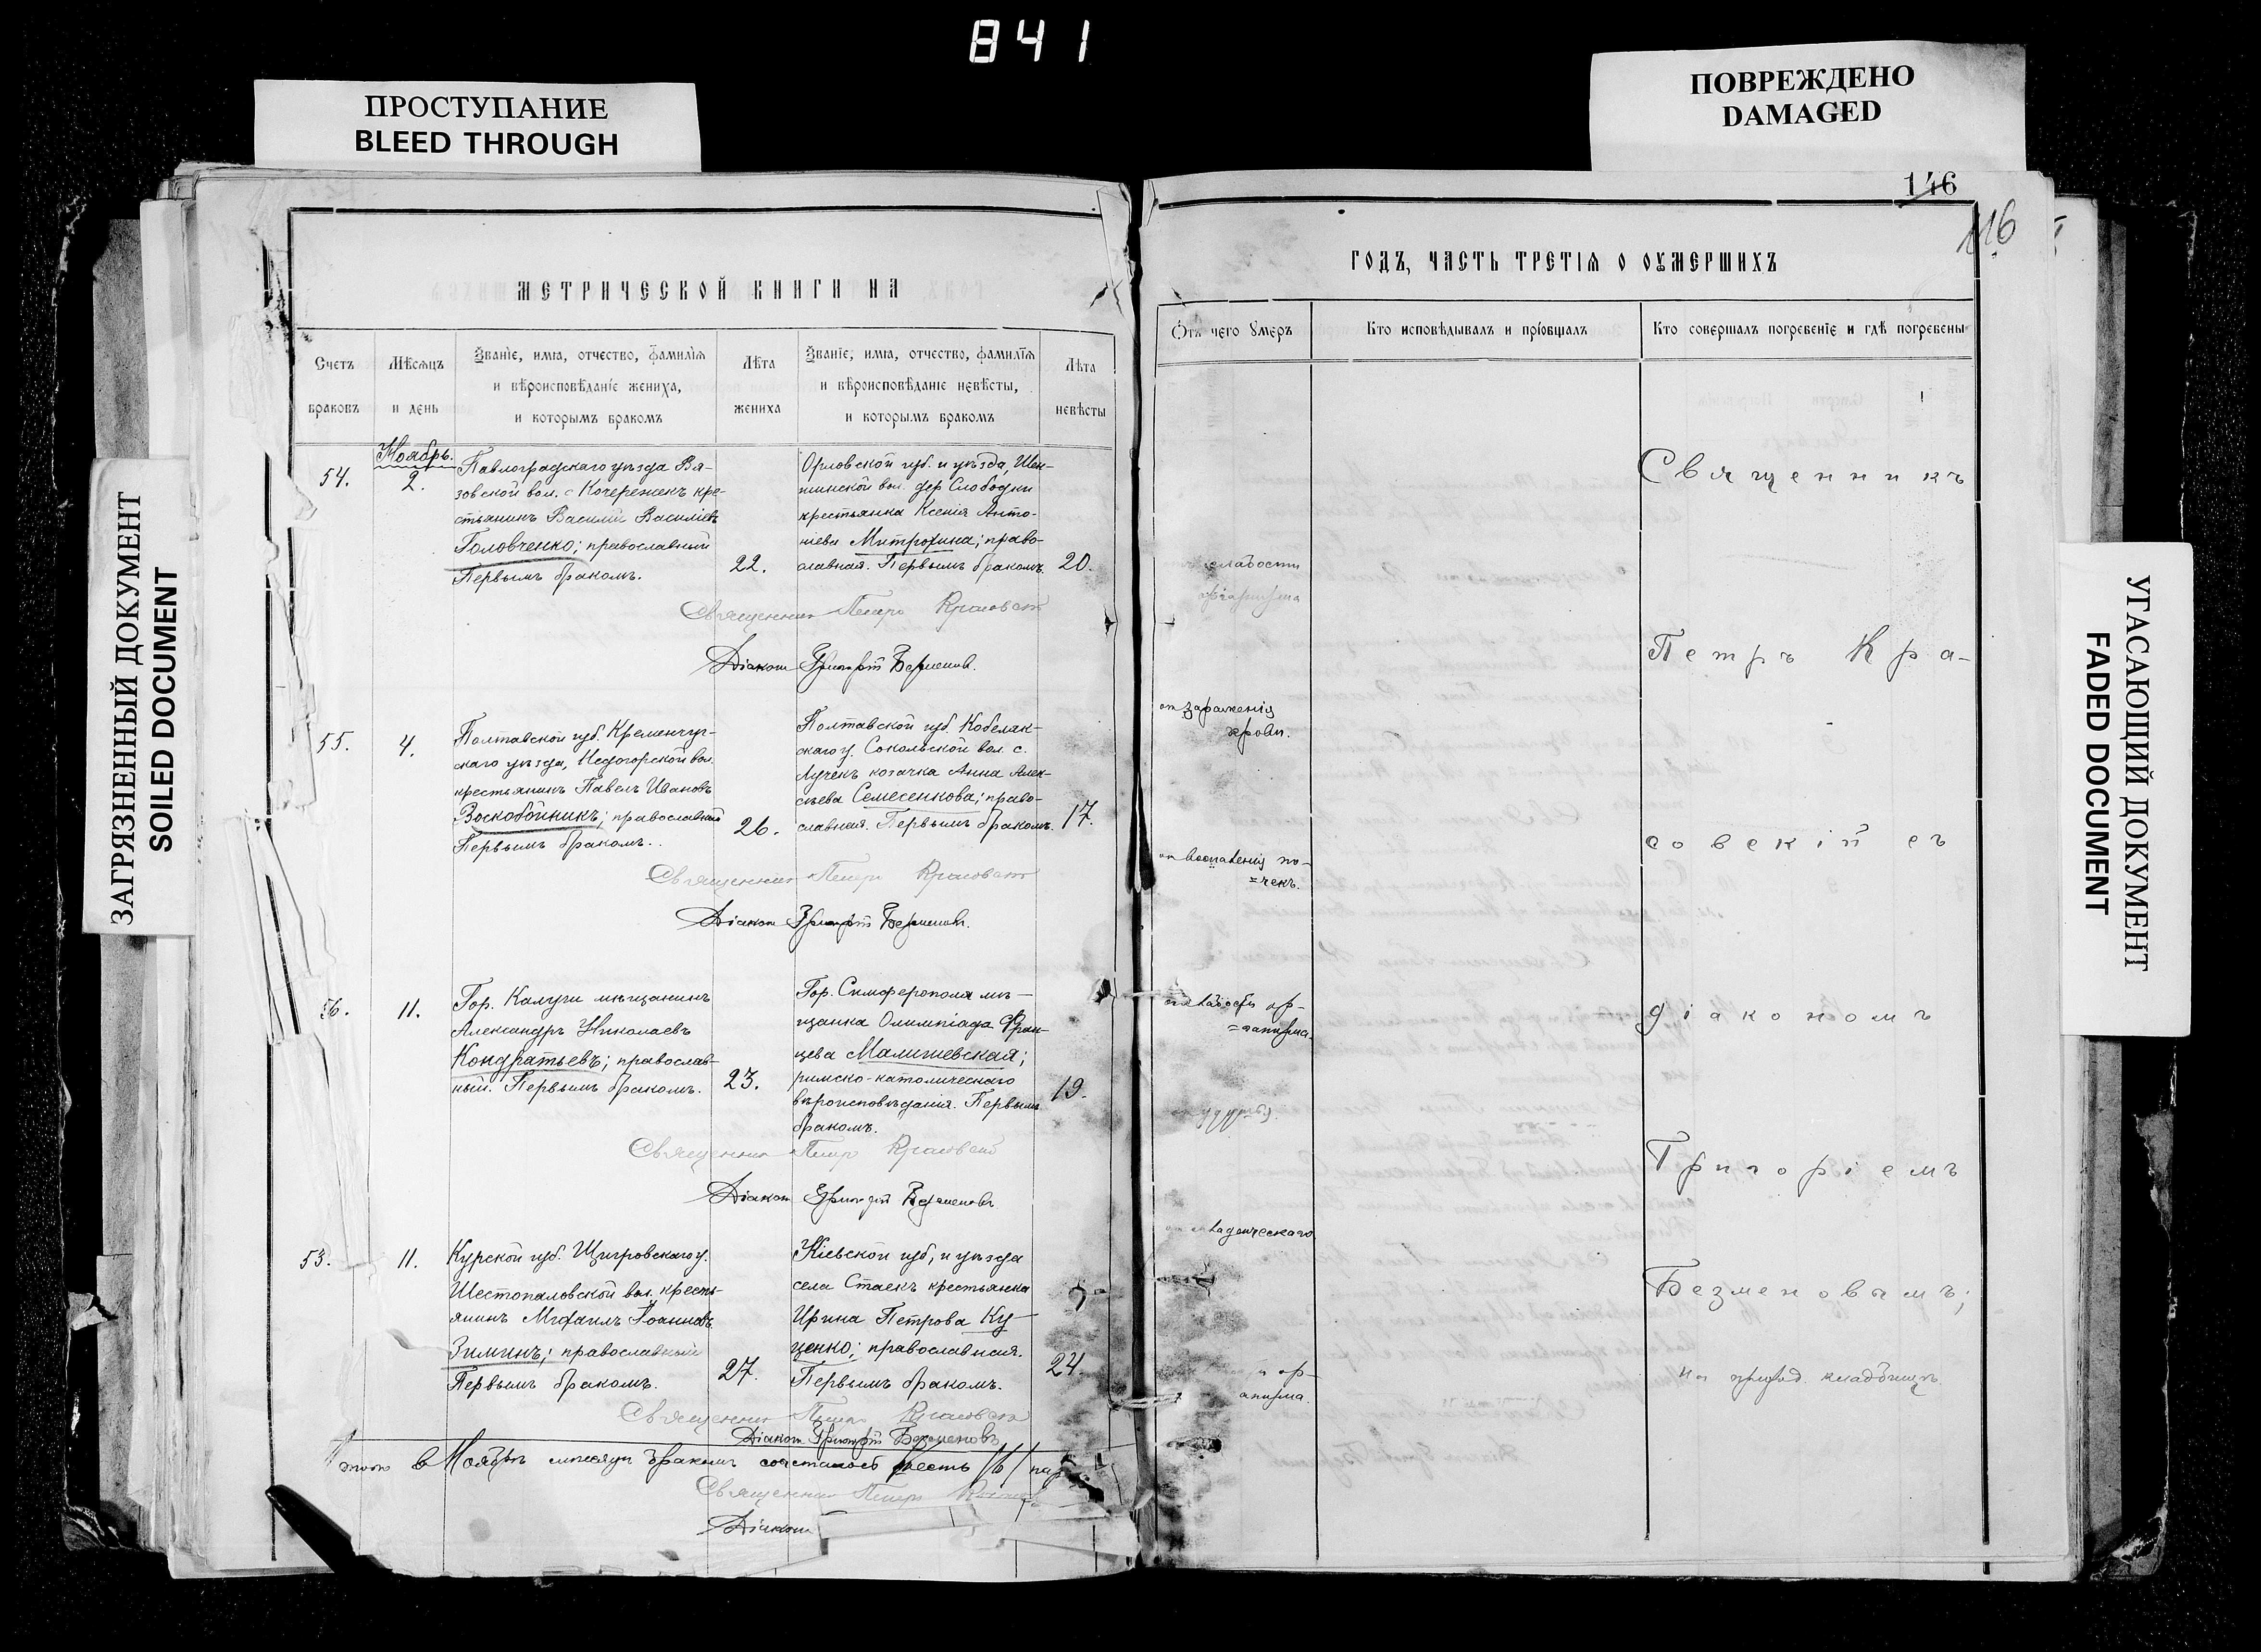 841
ПРОСТУПАНИЕ
BLEED THROUGH
ПОВРЕЖДЕНО
DAMAGED
ЗАГРЯЗНЕННЫЙ ДОКУМЕНТ
SOILED DOCUMENT
УГАСАЮЩИЙ ДОКУМЕНТ
FADED DOCUMENT
МЕТРИЧЕСКОЙ КНИГИ НА
Счетъ
браковъ
Мѣсяцъ
и день
Званіе, имя, отчество, фамилія
и вѣроисповѣданіе жениха,
и которымъ бракомъ
Лѣта
жениха
Званіе, имя, отчество, фамилія
и вѣроисповѣданіе невѣсты,
и которымъ бракомъ
Лѣта
невѣсты
Ноябрь.
54.
2.
Павлоградскаго уѣзда Вя-
зовской вол. с Кочережекъ кре-
стьянинъ Василій Василіевъ
Головченко; православный
Первымъ бракомъ.
22.
Орловской губ. и уѣзда,
дер Слободки
крестьянка Ксенія Анто-
ніева Митрохина; право-
славная. Первымъ бракомъ.
20.
Священникъ Петръ Красовскій
Діаконъ Григорій Безменовъ.
55.
4.
Полтавской губ. Кременчуг-
скаго уѣзда, Недогорской вол.
крестьянинъ Павелъ Ивановъ
Воскобойникъ; православный
Первымъ бракомъ.
26.
Полтавской губ. Кобеляк-
скаго у. Сокольской вол. с.
Лучекъ козачка Анна Алек-
сѣева Семесенкова; право-
славная. Первымъ бракомъ.
17.
Священникъ Петръ Красовскій
Діаконъ Григорій Безменовъ.
56.
11.
Гор. Калуги мѣщанинъ
Александръ Николаевъ
Кондратьевъ; православ-
ный. Первымъ бракомъ.
23.
Гор. Симферополя мѣ-
щанка Олимпіада Фран-
цева Малишевская;
римско-католическаго
вѣроисповѣданія. Первымъ
бракомъ.
19.
Священникъ Петръ Красовскій
Діаконъ Григорій Безменовъ
53.
11.
Курской губ. Щигровскаго у.
Шестопаловской вол. кресть-
янинъ Михаилъ Іоанновъ
Зиминъ; православный
Первымъ бракомъ.
27.
Кіевской губ, и уѣзда
села Стаекъ крестьянка
Ирина Петрова Ку-
ценко; православная.
Первымъ бракомъ.
24.
Священникъ Петръ Красовскій
Діаконъ Григорій Безменовъ
Итого в Ноябрѣ мѣсяцѣ бракомъ сочеталось шесть /6/ пар
Священникъ Петръ
Діаконъ
146
116
ГОДЪ, ЧАСТЬ ТРЕТІЯ О ОУМЕРШИХЪ
Отъ чего умеръ
Кто исповѣдывалъ и пріобщалъ
Кто совершалъ погребеніе и гдѣ погребены
слабости
организма
от зараженія
крови.
от воспаленія по-
=чекъ.
слабости ор-
=ганизма.
от удушья.
от младенческаго
ор-
ганизма.
Священникъ
Петръ Кра-
совскій съ
діакономъ
Григоріемъ
Безменовымъ;
на приход. кладбищѣ